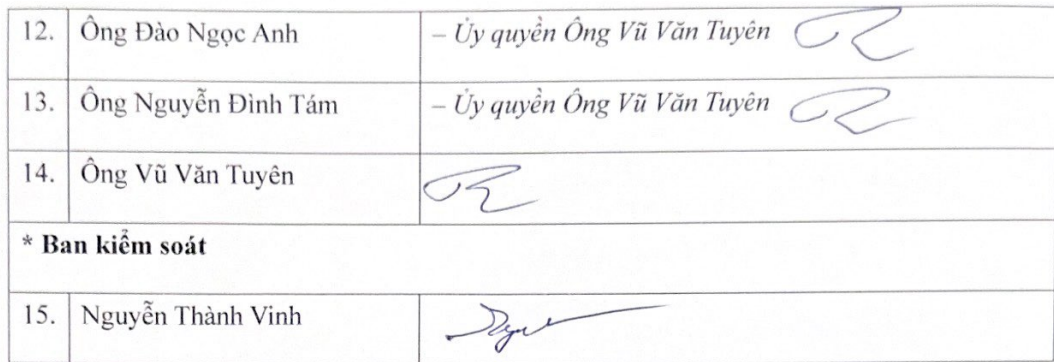 12. Ông Đào Ngọc Anh – Ủy quyền Ông Vũ Văn Tuyên
13. Ông Nguyễn Đình Tám – Ủy quyền Ông Vũ Văn Tuyên
14. Ông Vũ Văn Tuyên
* Ban kiểm soát
15. Nguyễn Thành Vinh